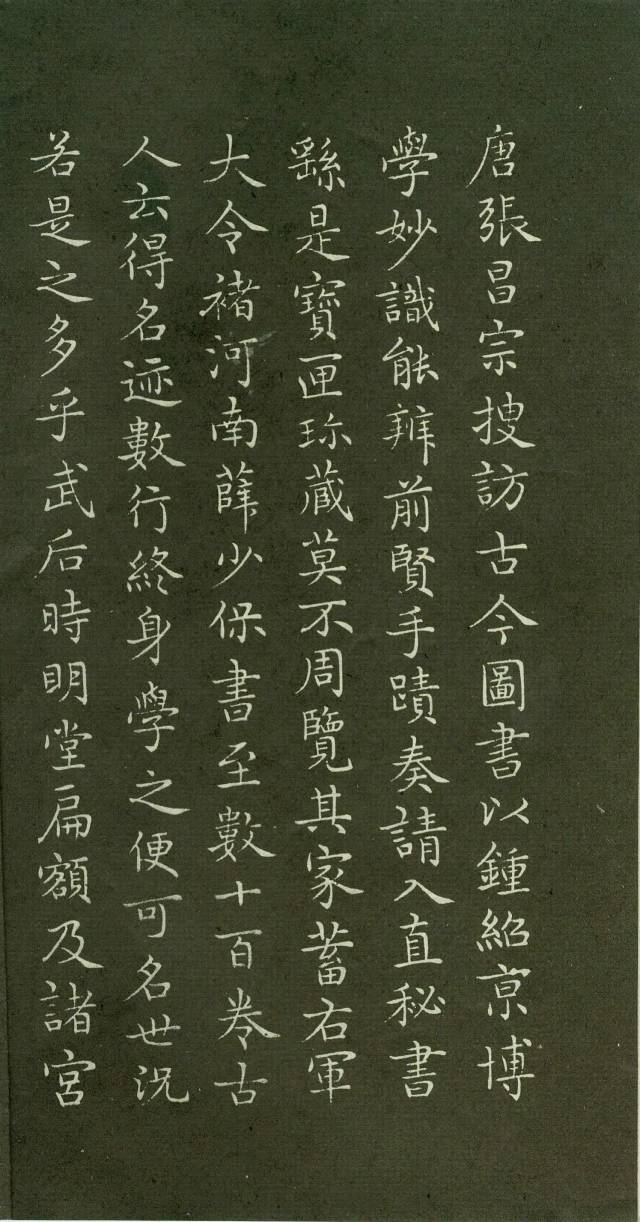 唐張昌宗搜訪古今圖書以鍾紹京博
學妙識能辨前賢手蹟奏請入直秘書
繇是寶匣珎藏莫不周覽其家蓄右軍
大令褚河南薛少保書至數十百卷古
人云得名迹數行終身學之便可名世況
若是之多乎武后時明堂扁額及諸宮